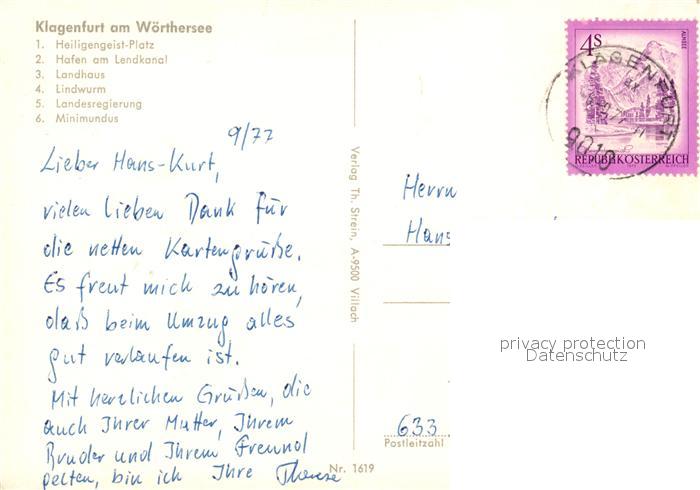 Klagenfurt am Wörthersee
1. Heiligengeist-Platz
2. Hafen am Lendkanal
3. Landhaus
4. Lindwurm
5. Landesregierung
6. Minimundus
9/77
Lieber Hans-Kurt,
vielen lieben Dank für
die netten Kartengrüße.
Es freut mich zu hören,
daß beim Umzug alles
gut verlaufen ist.
Mit herzlichen Grüßen, die
auch Ihrer Mutter, Ihrem
Bruder und Ihrem Freund
gelten, bin ich Ihre Therese
Verlag Th. Strein, A-9500 Villach
Nr. 1619
4S
ALMSEE
REPUBLIK ÖSTERREICH
KLAGENFURT
9010
Herrn
Hans
privacy protection
Datenschutz
633
Postleitzahl